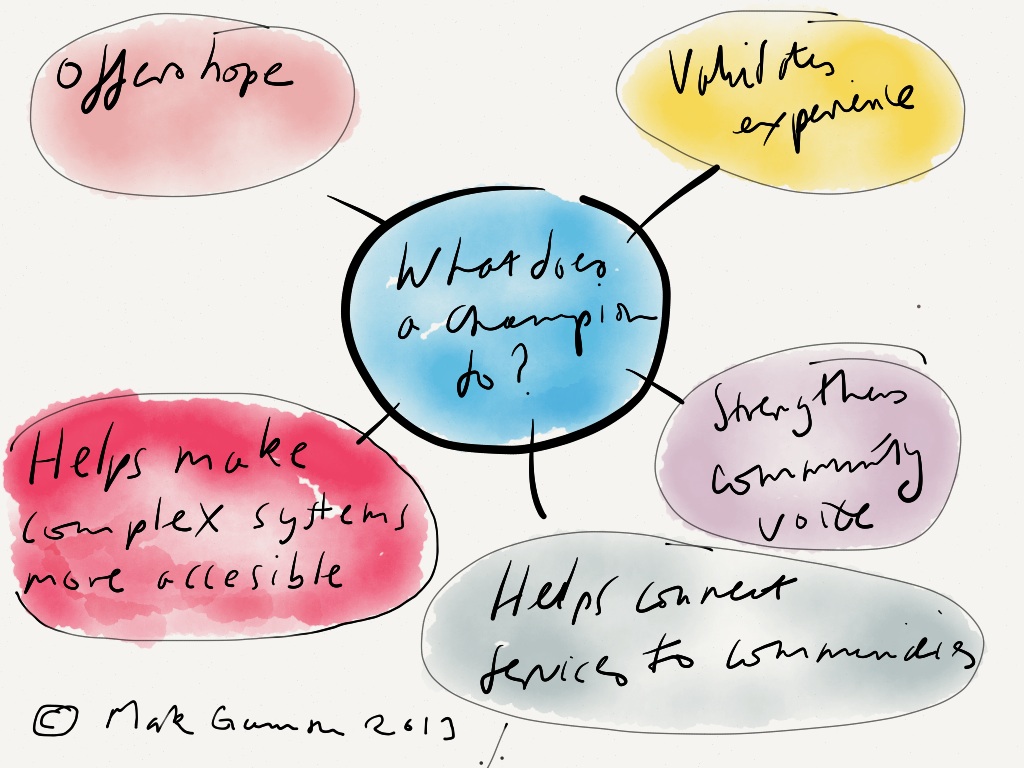 Offers hope
Validates
experience
What does
a champion
do?
Strengthens
community
voice
Helps make
complex systems
more accesible
Helps connect
services to communities
© Mark 2013